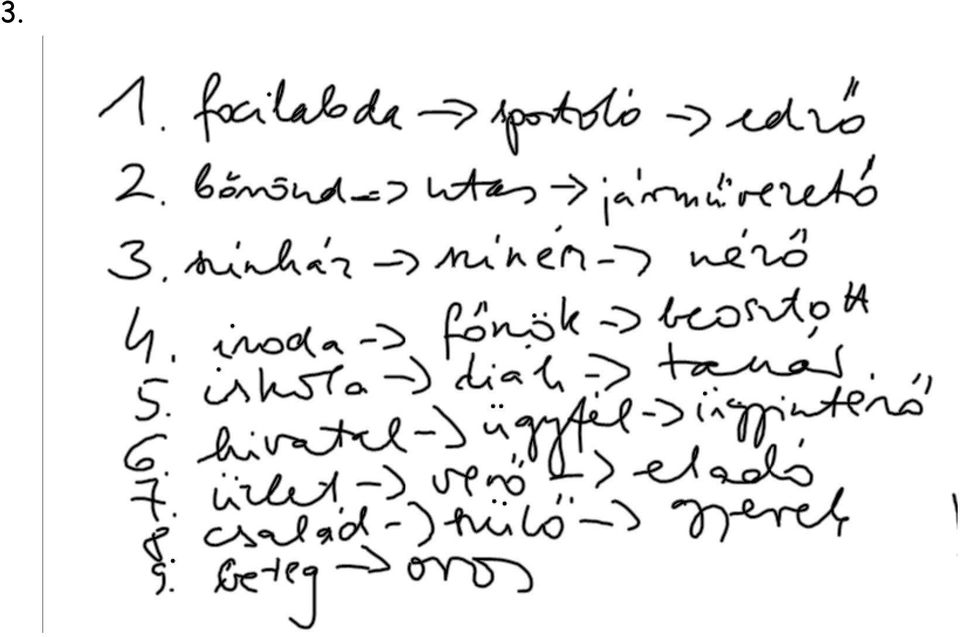 3.
1. focilabda → sportoló → edző
2. bőrönd → utas → járművezető
3. színház → színész → néző
4. iroda → főnök → beosztott
5. iskola → diák → tanár
6. hivatal → ügyfél → ügyintéző
7. üzlet → vevő → eladó
8. család → szülő → gyerek
9. beteg → orvos